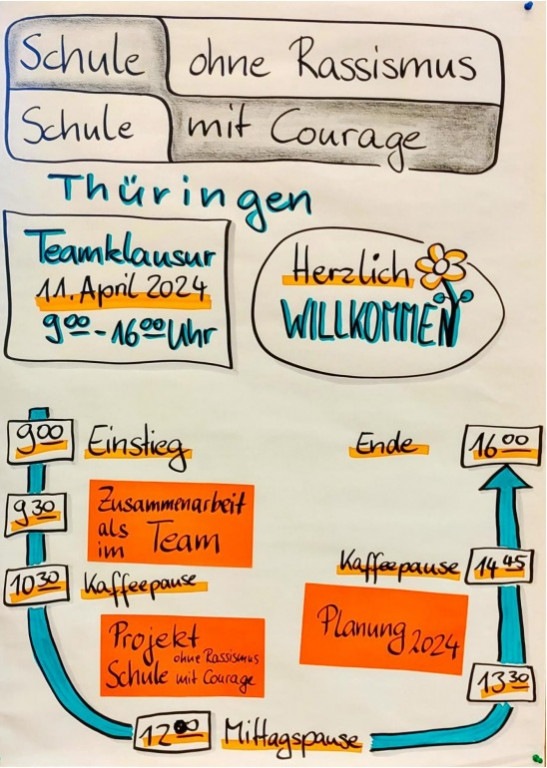 Schule ohne Rassismus
Schule mit Courage
Thüringen
Teamklausur
11. April 2024
9 00 - 16 00 Uhr
Herzlich
WILLKOMMEN
9 00 Einstieg
9 30
Zusammenarbeit
als
im Team
10 30 Kaffeepause
Projekt
ohne Rassismus
Schule mit Courage
12 00 Mittagspause
13 30
Planung 2024
Kaffeepause 14 45
Ende 16 00